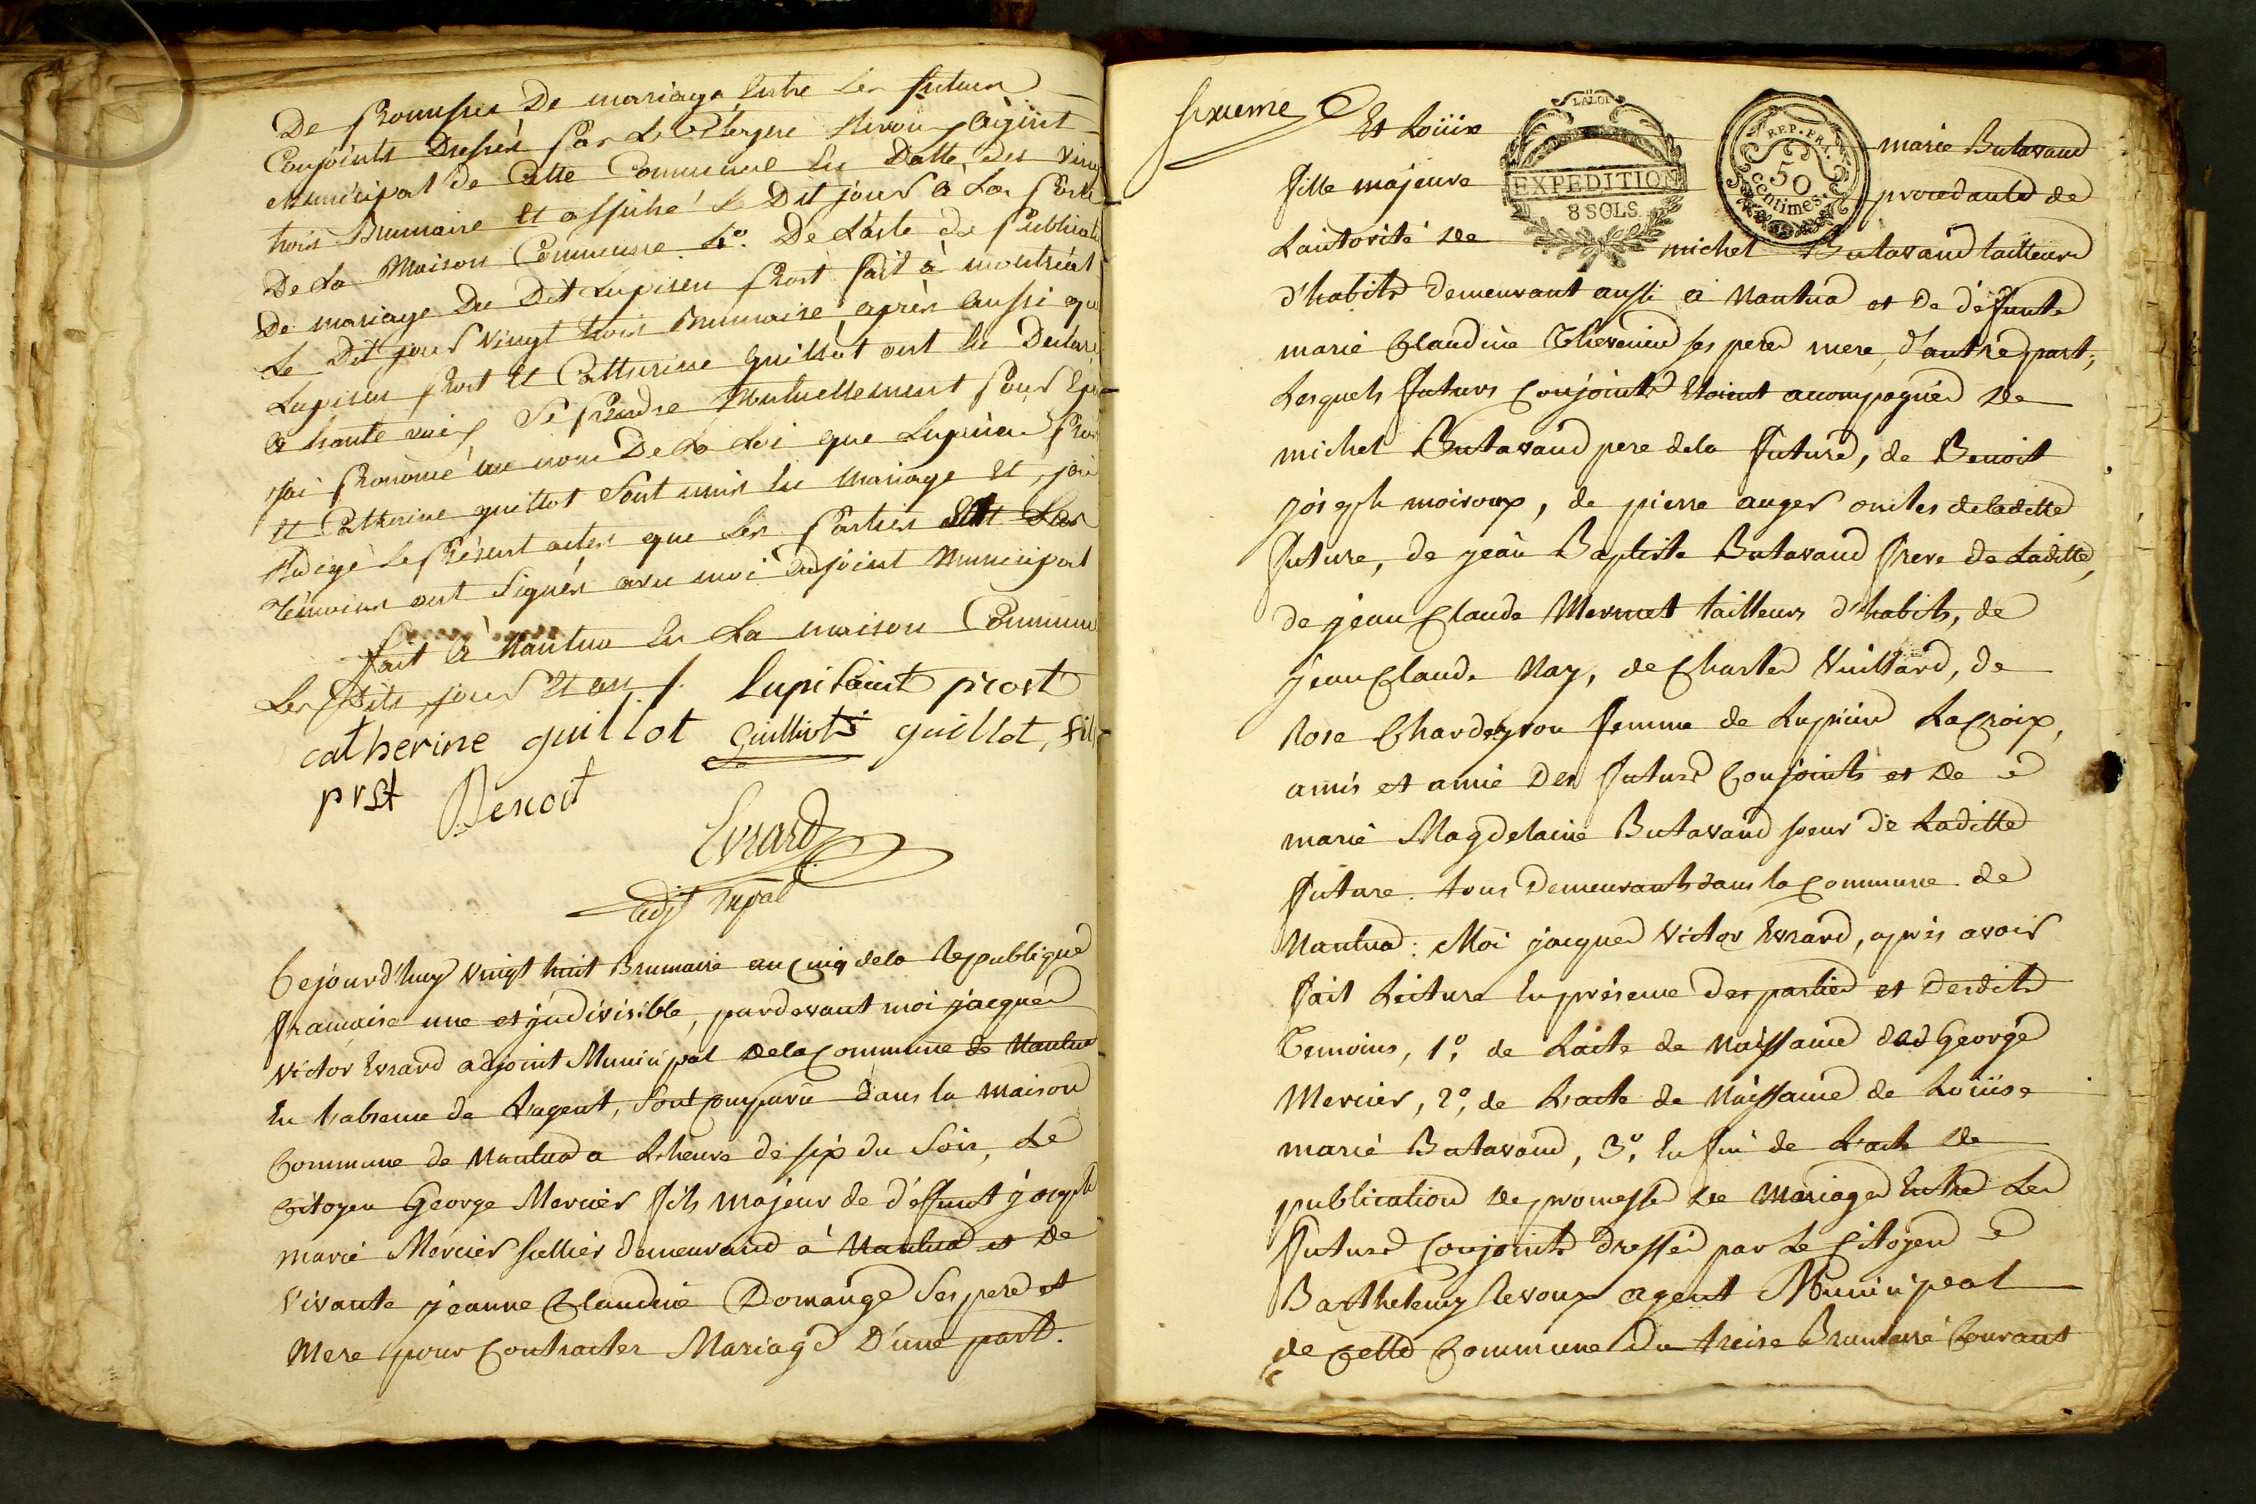 De Promesses De mariage Entre Les futurs
Conjoints Dressés Par Le Citoyen Revoux Agent
Municipal de Cette Commune En Datte des Vingt
trois Brumaire Et affiché Le Dit jour à La Porte
De La Maison Commune 4.° De L'acte de Publication
De mariage Du Dit Lupicin Prost fait à montréal
Le Dit jour Vingt trois Brumaire, après aussi que
Lupicin Prost Et Catherine Guillot ont Eu Déclaré
à haute voix Se Prendre Mutuellement Pour Epoux
j'ai Prononcé au nom De La Loi que Lupicin Prost
Et Catherine guillot Sont unis En Mariage Et j'ai
Rédigé le Présent acte que Les Parties Et Les
Témoins ont Signés avec moi adjoint Municipal
fait à Nantua En La maison Commune
Les Dits jour Et an /. lupisaint prost
catherine guillot Guilliot guillot, fils
prst Benoit
Evrard
adjt mpal
Cejourd'huy vingt huit Brumaire an Cinq dela Republique
francaise une et indivisible, pardevant moi jacques
victor Evrard adjoint Municipal dela Commune de Nantua
En L'absence de L'agent, Sont comparu dans la maison
Commune de Nantua a L'heure de six du Soir, Le
Citoyen George Mercier fils majeur de deffunt joseph
marie Mercier sellier demeurand à Nantua et de
vivante jeanne Claudine Domange Ses pere et
Mere pour Contracter Mariage D'une part.
sixieme
Et Loüise marie Butavand
LA LOI
EXPEDITION
8 SOLS
REP. FRA.
50
centimes.
fille majeure procedante de
L'autorité de michel Butavand tailleur
d'habits demeurant aussi à Nantua et de deffunte
marie Claudine Thevenin ses pere mere, d'autre part,
Lesquels futurs Conjoints Etoient accompagnés de
michel Butavand pere dela future, de Benoit
joseph moiroux, de pierre auger oncles de laditte
future, de jean Baptiste Butavand frere de Laditte,
de jean Claude Mermet tailleurs d'habits, de
jean Claude Nay, de Charles Vuillard, de
Rose Chardeyron femme de Lupicin LaCroix,
amis et amie Des futurs Conjoints et de
marie Magdelaine Butavand soeur de Laditte
future. tous Demeurants dans la Commune de
Nantua: Moi jacques Victor Evrard, après avoir
fait Lecture En présence des parties et desdits
Temoins, 1°, de L'acte de Naissance de George
Mercier, 2°, de L'acte de Naissance de Loüise
marie Butavand, 3°, En fin de L'acte de
publication de promesse de Mariage Entre Les
futurs Conjoints dressé par Le Citoyen
Barthelemy Revoux agent Municipal
de Cette Commune Du treize Brumaire Courant